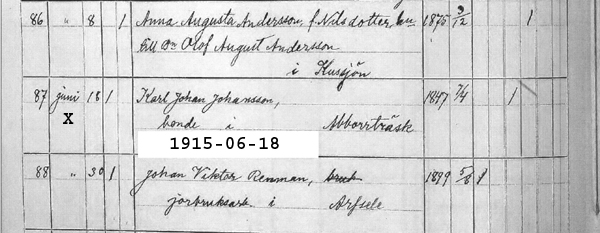 86 " 8 1 Anna Augusta Andersson, f. Nilsdotter, hu- 1875 9/12 1
till Bn Olof August Andersson
i Kussjön
87 juni 18 1 Karl Johan Johansson, 1847 7/4 1
X
bonde i Abborrträsk
1915-06-18
88 " 30 1 Johan Viktor Renman, bruk 1899 5/8 1
jorbruksarb. i Arfsele